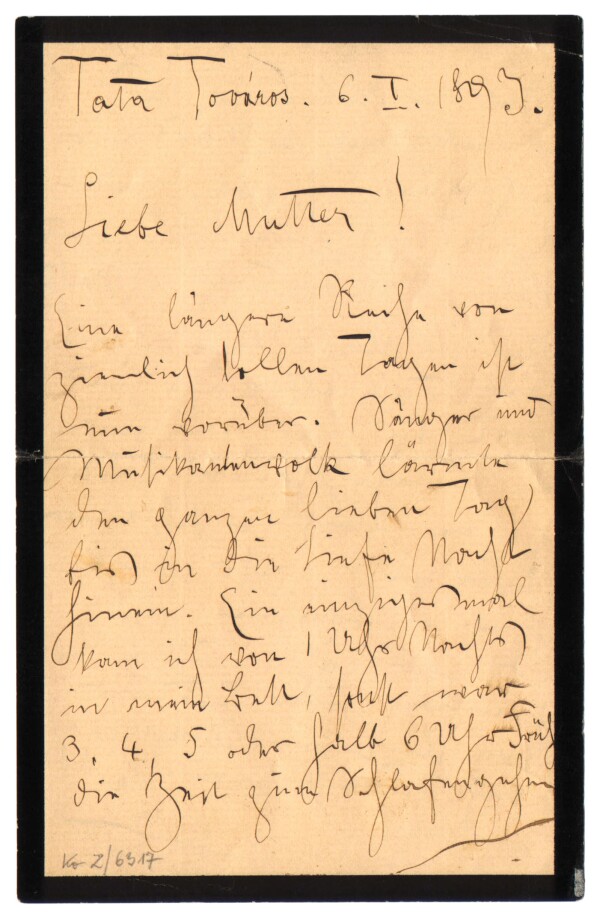 Tata Továros. 6. I. 1893.
Liebe Mutter!
Eine längere Reihe von
ziemlich tollen Tagen ist
nun vorüber. Sänger und
Musikantenvolk lärmte
den ganzen lieben Tag
bis in die tiefe Nacht
hinein. Ein einzigesmal
kam ich von 1 Uhr Nachts
in mein Bett, sonst war
3, 4, 5 oder halb 6 Uhr Früh
die Zeit zum Schlafengehen
Ko Z/6317